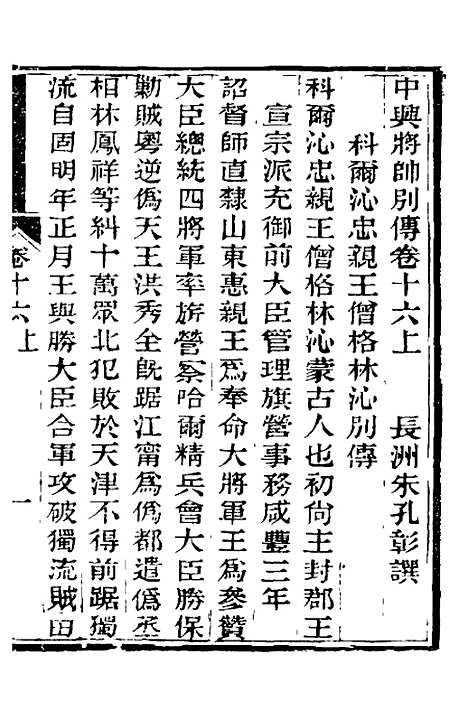 中興將帥別傳卷十六上　長洲朱孔彰譔
科爾沁忠親王僧格林沁別傳
科爾沁忠親王僧格林沁蒙古人也初尙主封郡王
宣宗派充御前大臣管理旗營事務咸豐三年
詔督師直隸山東惠親王爲奉命大將軍王爲參贊
大臣總統四將軍率旂營察哈爾精兵會大臣勝保
勦賊粤逆僞天王洪秀全旣踞江甯爲僞都遣僞丞
相林鳳祥等糾十萬眾北犯敗於天津不得前踞獨
流自固明年正月王與勝大臣合軍攻破獨流賊田
卷十六上
一